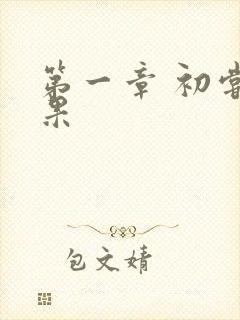 第一章 初尝
果
包文婧